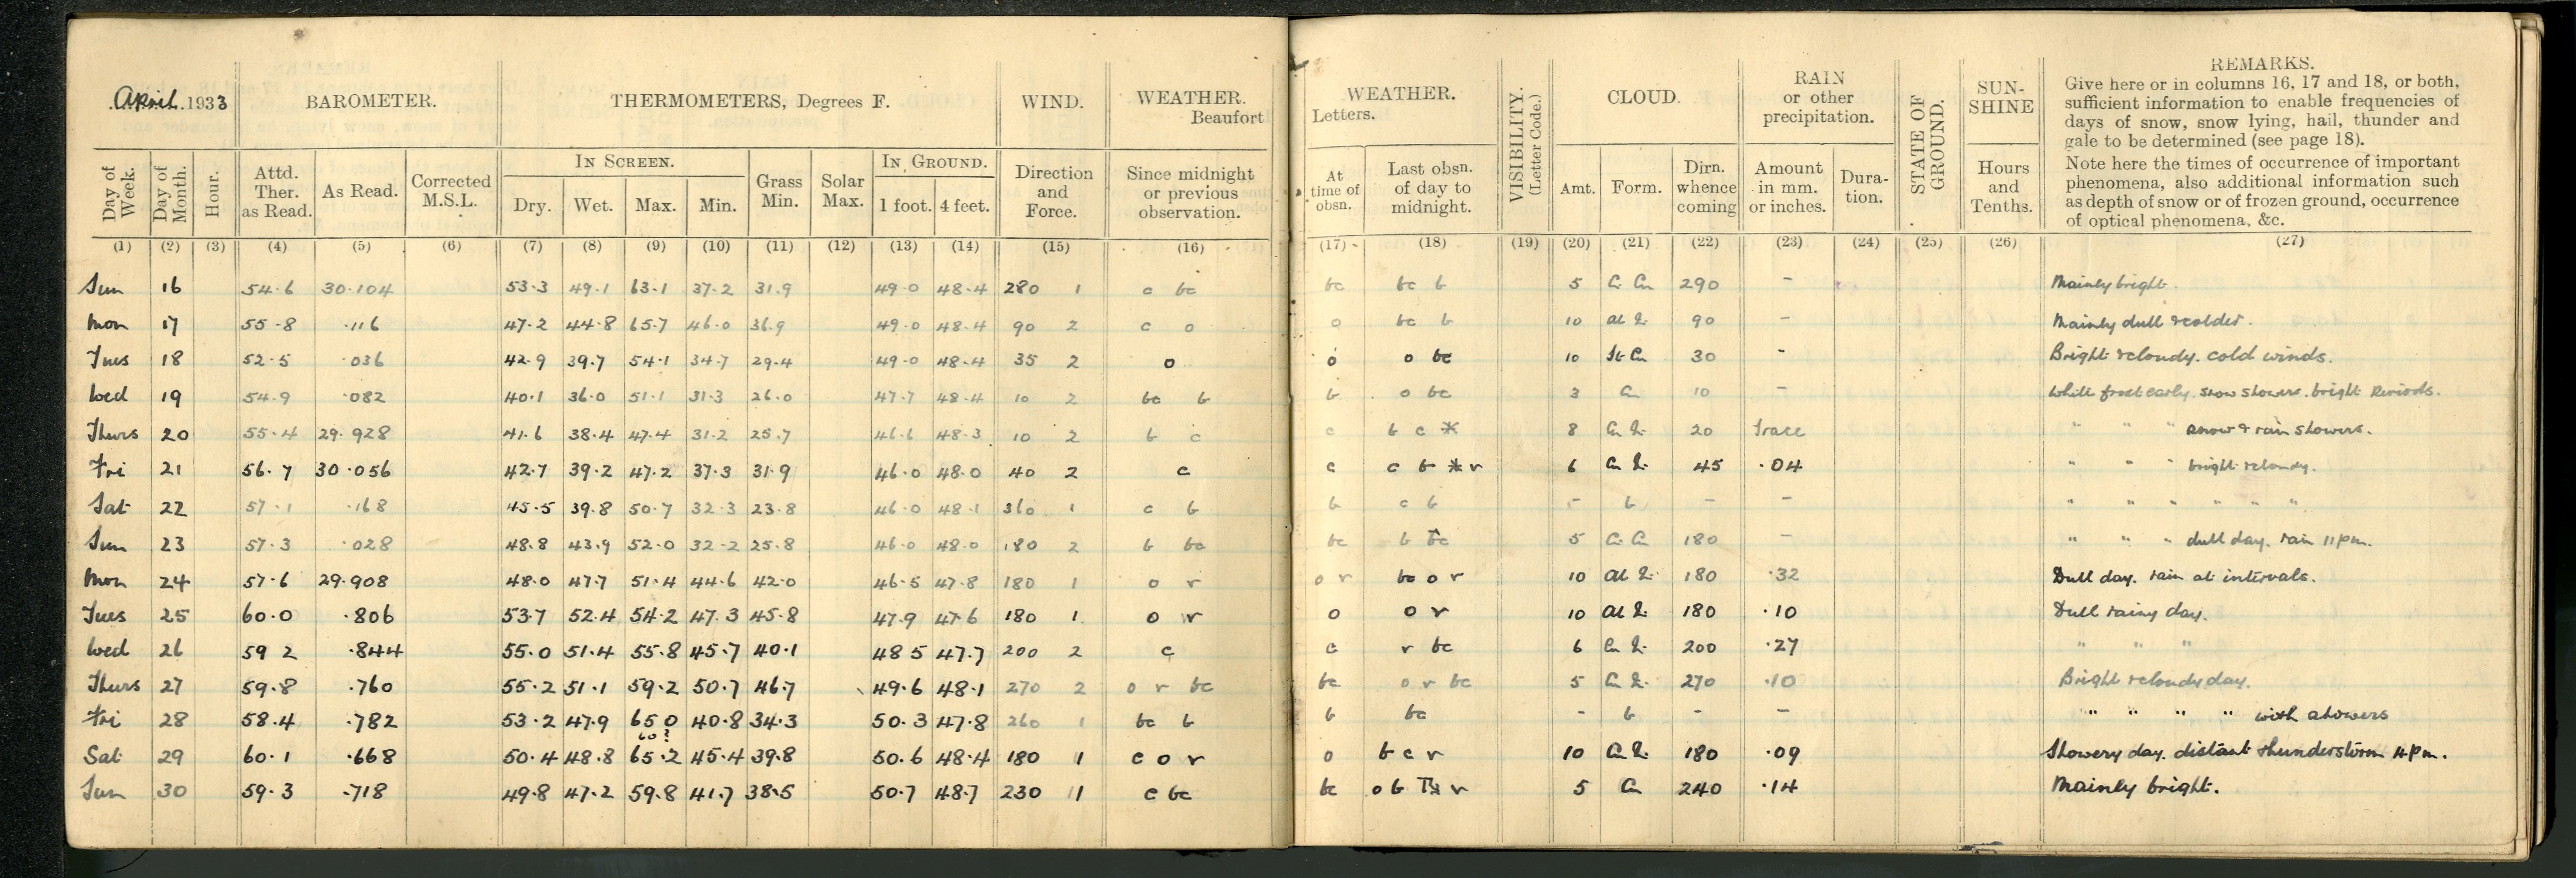 April 1933 BAROMETER. THERMOMETERS, Degrees F. WIND. WEATHER. Beaufort WEATHER. Letters. VISIBILITY. (Letter Code.) CLOUD. RAIN or other precipitation. STATE OF GROUND. SUN-SHINE REMARKS.
Give here or in columns 16, 17 and 18, or both, sufficient information to enable frequencies of days of snow, snow lying, hail, thunder and gale to be determined (see page 18).
Note here the times of occurrence of important phenomena, also additional information such as depth of snow or of frozen ground, occurrence of optical phenomena, &c.
IN SCREEN. IN GROUND.
Day of Week. Day of Month. Hour. Attd. Ther. as Read. As Read. Corrected M.S.L. Dry. Wet. Max. Min. Grass Min. Solar Max. 1 foot. 4 feet. Direction and Force. Since midnight or previous observation. At time of obsn. Last obsn. of day to midnight. Amt. Form. Dirn. whence coming Amount in mm. or inches. Dura-tion. Hours and Tenths.
(1) (2) (3) (4) (5) (6) (7) (8) (9) (10) (11) (12) (13) (14) (15) (16) (17) (18) (19) (20) (21) (22) (23) (24) (25) (26) (27)
Sun 16 54.6 30.104 53.3 49.1 63.1 37.2 31.9 49.0 48.4 280 1 c bc bc bc b 5 290 - Mainly bright.
Mon 17 55.8 .116 47.2 44.8 65.7 46.0 36.9 49.0 48.4 90 2 c o o bc b 10 90 - Mainly dull & colder.
Tues 18 52.5 .036 42.9 39.7 54.1 34.7 29.4 49.0 48.4 35 2 o o o bc 10 St Cu 30 - Bright & cloudy. cold winds.
Wed 19 54.9 .082 40.1 36.0 51.1 31.3 26.0 47.7 48.4 10 2 bc b b o bc 3 Cu 10 - White frost early. snow showers. bright Periods.
Thurs 20 55.4 29.928 41.6 38.4 47.4 31.2 25.7 46.6 48.3 10 2 b c c b c * 8 20 Trace " " " snow & rain showers.
Fri 21 56.7 30.056 42.7 39.2 47.2 37.3 31.9 46.0 48.0 40 2 c c c b * r 6 45 .04 " " " bright & cloudy.
Sat 22 57.1 .168 45.5 39.8 50.7 32.3 23.8 46.0 48.1 360 1 c b b c b - b - - " " " " " "
Sun 23 57.3 .028 48.8 43.9 52.0 32.2 25.8 46.0 48.0 180 2 b bc bc b bc 5 180 - " " " dull day. rain 11pm.
Mon 24 57.6 29.908 48.0 47.7 51.4 44.6 42.0 46.5 47.8 180 1 o r o r bc o r 10 180 .32 Dull day. rain at intervals.
Tues 25 60.0 .806 53.7 52.4 54.2 47.3 45.8 47.9 47.6 180 1 o r o o r 10 180 .10 Dull rainy day.
Wed 26 59 2 .844 55.0 51.4 55.8 45.7 40.1 48 5 47.7 200 2 c c r bc 6 200 .27 " " "
Thurs 27 59.8 .760 55.2 51.1 59.2 50.7 46.7 49.6 48.1 270 2 o r bc bc o r bc 5 270 .10 Bright & cloudy day.
Fri 28 58.4 .782 53.2 47.9 65 0 40.8 34.3 50.3 47.8 260 1 bc b b bc - b - - " " " " with showers
60?
Sat 29 60.1 .668 50.4 48.8 65.2 45.4 39.8 50.6 48.4 180 1 c o r o b c r 10 180 .09 Showery day. distant thunderstorm 4pm.
Sun 30 59.3 .718 49.8 47.2 59.8 41.7 38.5 50.7 48.7 230 1 c bc bc o b r 5 Cu 240 .14 Mainly bright.